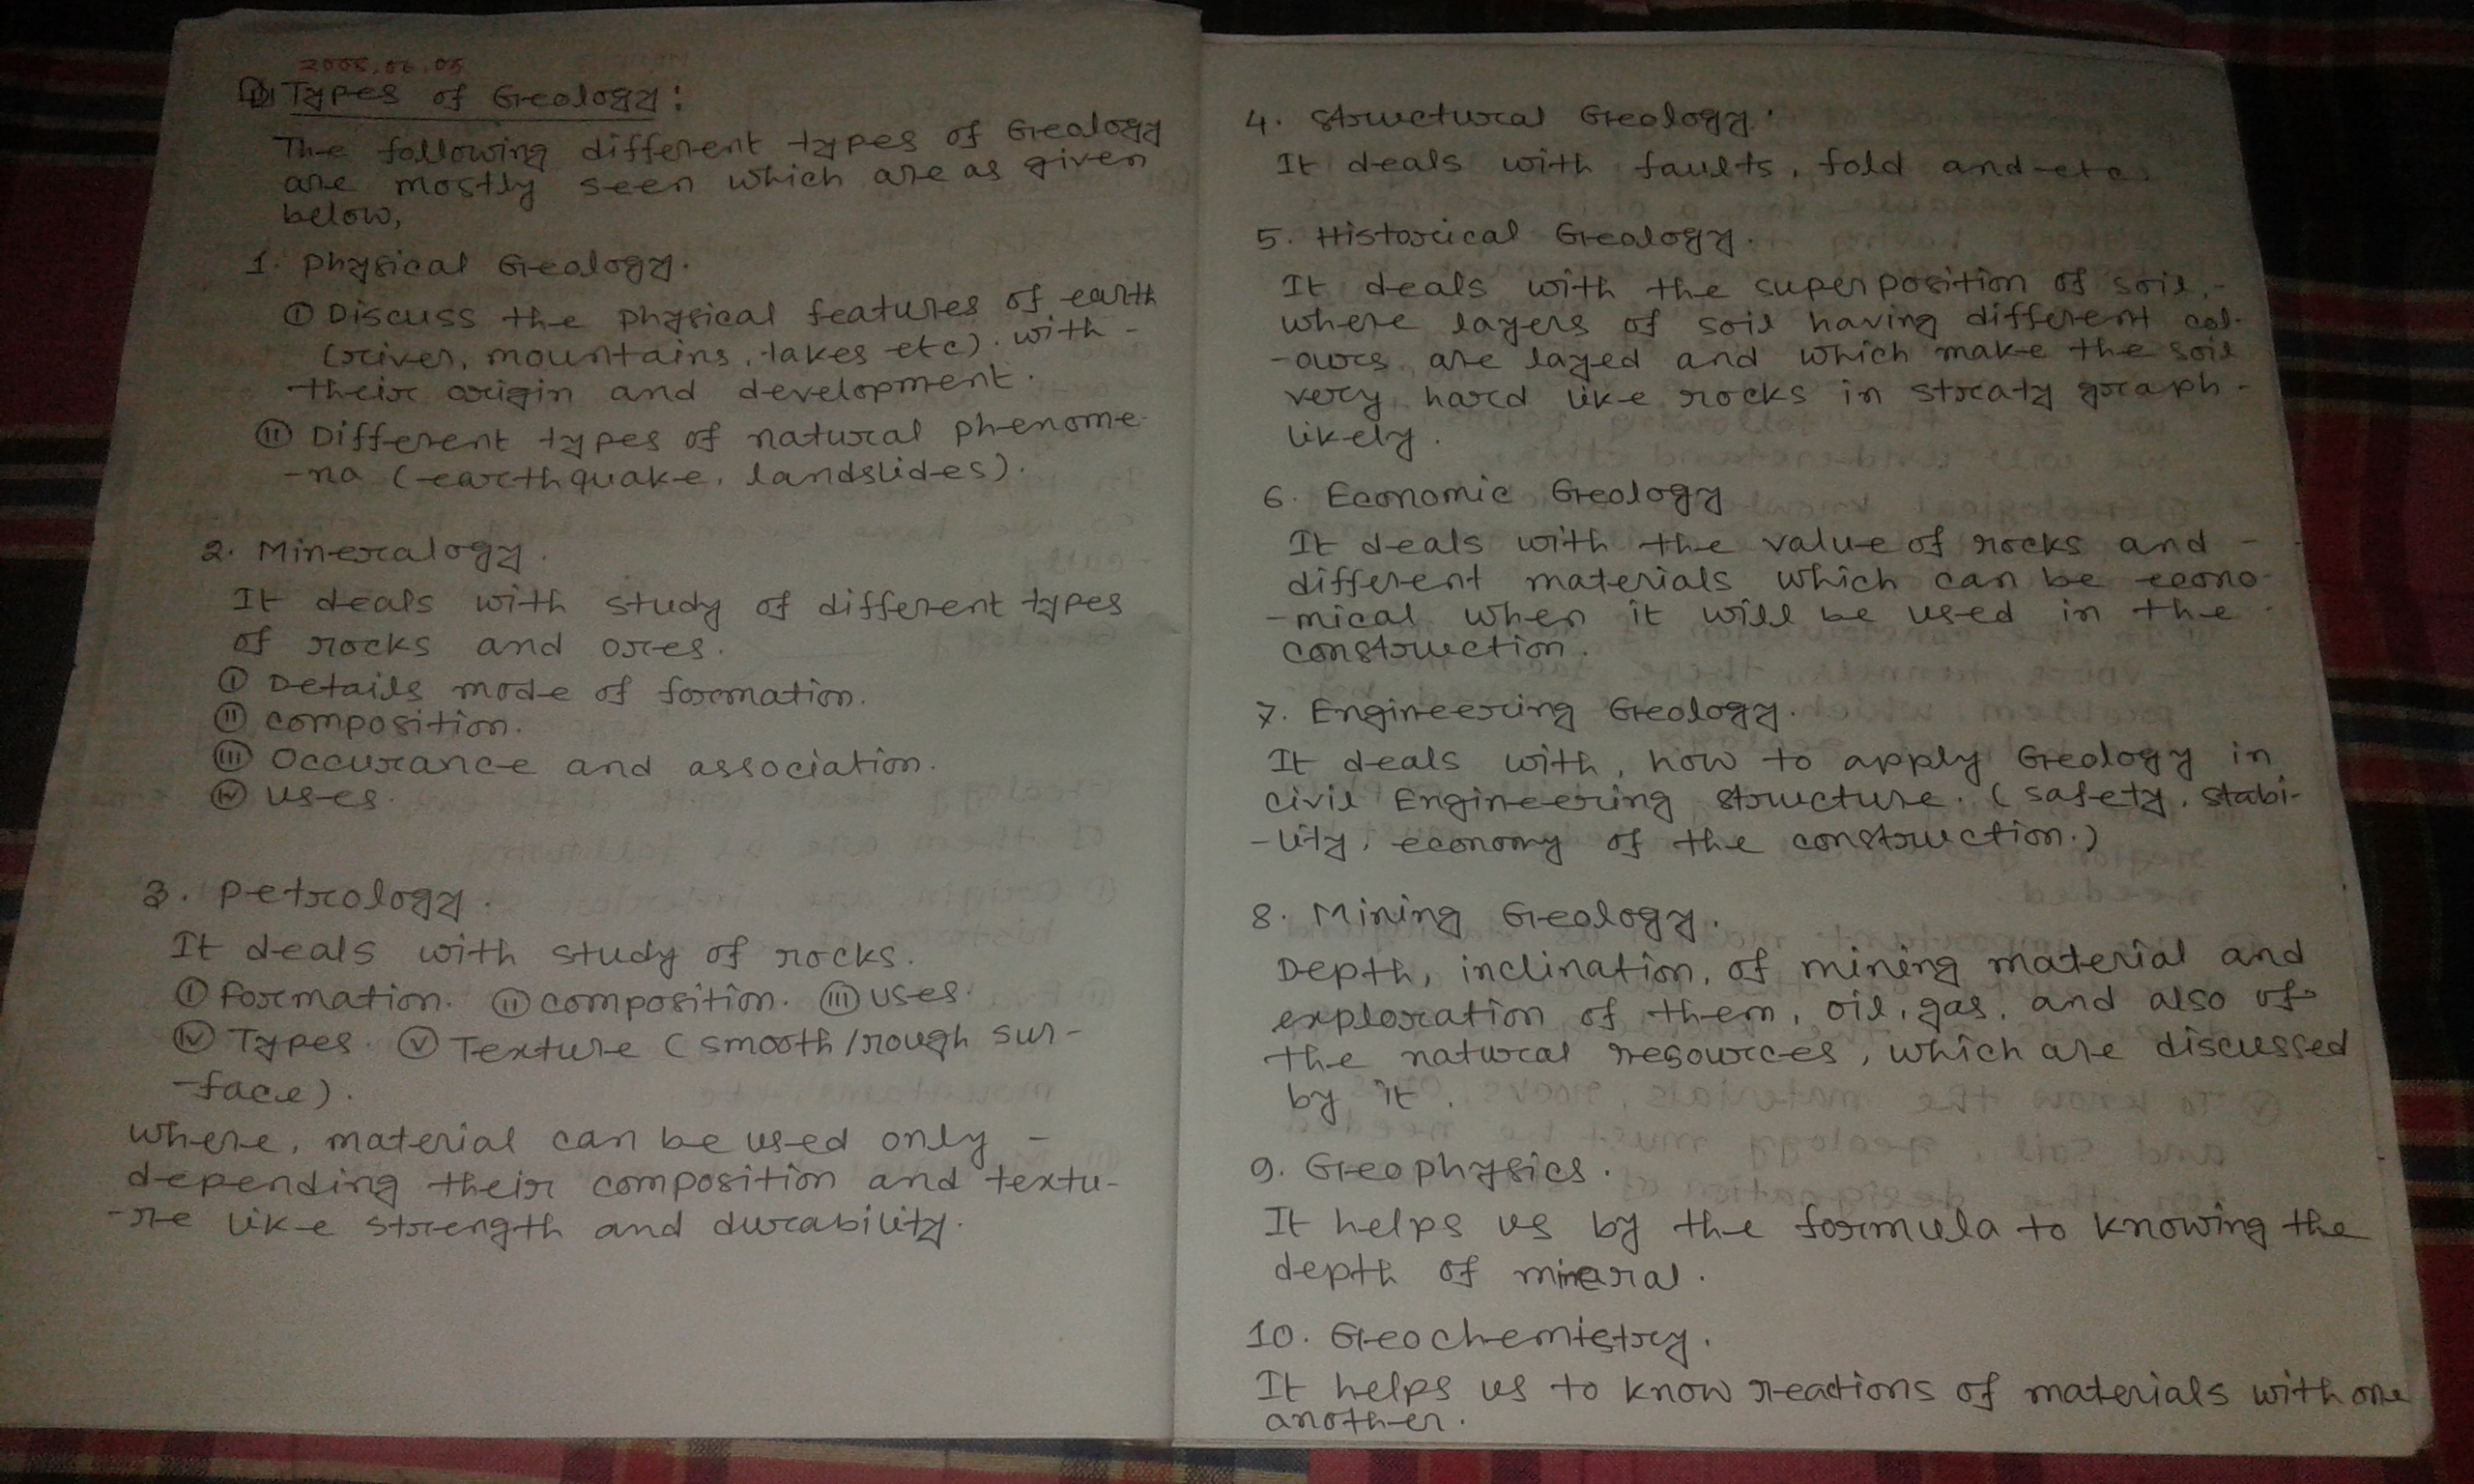 Types of Geology:
The following different types of Geology
are mostly seen which are as given
below,
1. Physical Geology.
(I) Discuss the physical features of earth
(river, mountains, lakes etc). with -
their origin and development.
(II) Different types of natural phenome-
-na (earthquake, landslides).
2. Mineralogy.
It deals with study of different types
of rocks and ores.
(I) Details mode of formation.
(II) composition.
(III) Occurance and association.
(IV) uses.
3. Petrology.
It deals with study of rocks.
(I) Formation. (II) composition. (III) uses.
(IV) Types. (V) Texture (smooth/rough sur-
-face).
where, material can be used only -
depending their composition and textu-
-re like strength and durability.
4. Structural Geology.
It deals with faults, fold and etc.
5. Historical Geology.
It deals with the superposition of soil, -
where layers of soil having different col-
-ours, are layed and which make the soil
very hard like rocks in straty graph -
likely.
6. Economic Geology
It deals with the value of rocks and -
different materials which can be econo-
-mical when it will be used in the
construction.
7. Engineering Geology.
It deals with, how to apply Geology in
civil Engineering structure. (safety, stabi-
-lity, economy of the construction.)
8. Mining Geology.
Depth, inclination, of mining material and
exploration of them, oil, gas, and also of
the natural resources, which are discussed
by it.
9. Geophysics.
It helps us by the formula to knowing the
depth of mineral.
10. Geochemistry.
It helps us to know reactions of materials with one
another.